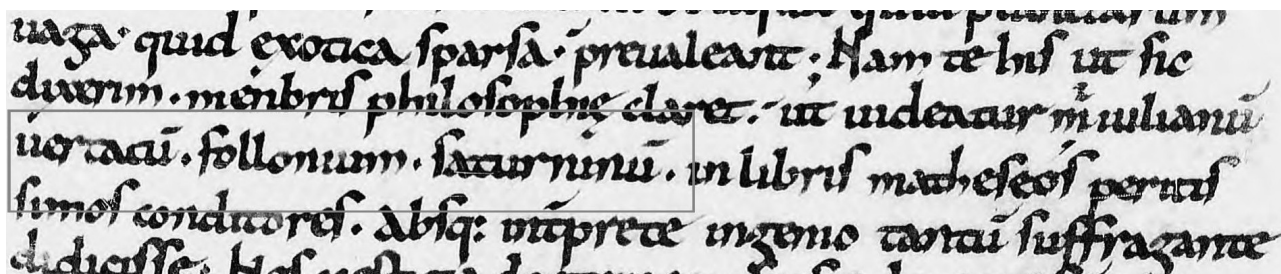 uaga· quid exotica sparsa· preualeant; Nam te his ut sic
dixerim· menbris philosophię claret·ut uideatur m̄ iulianū
uertacū· follonium· saturninū· in libris matheseos peritis
simos conditores· Absq: int̄prete ingenio tantū suffragante
didicisse· Hos